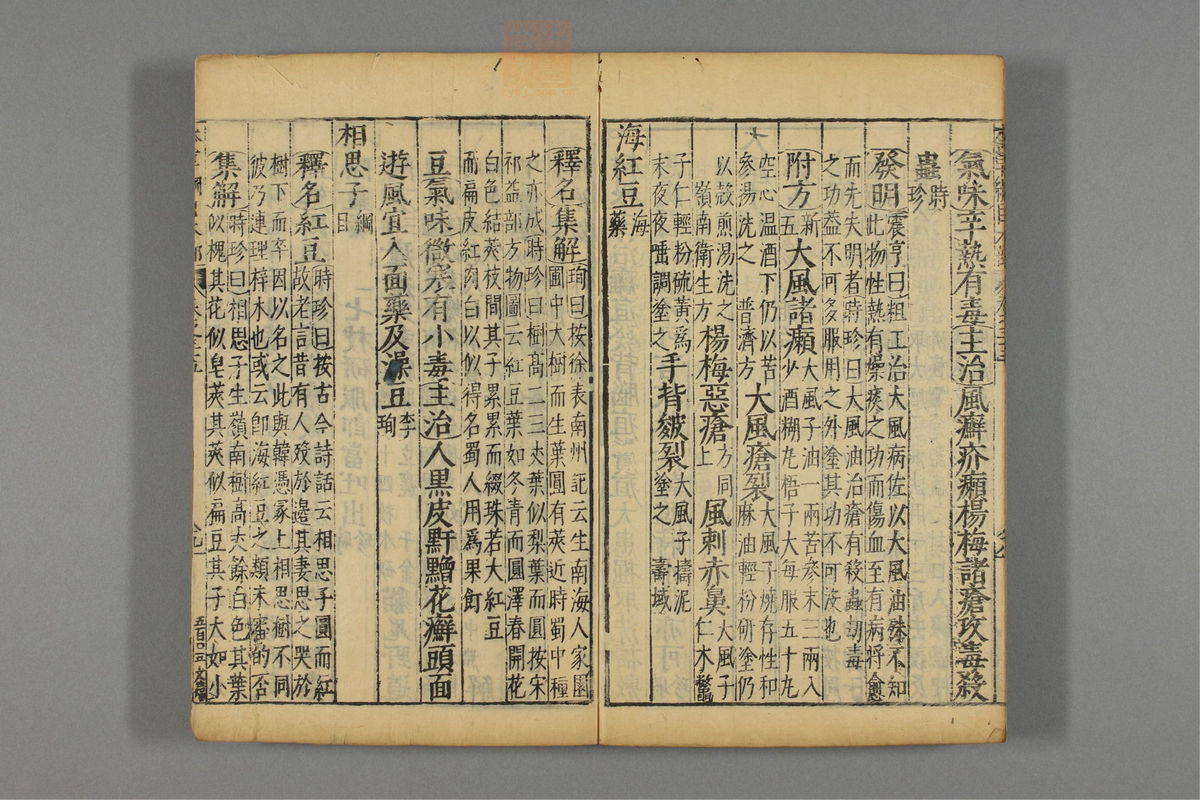 氣味辛熱有毒主治風癬疥癩楊梅諸瘡攻毒殺
蟲時珍
發明震亨曰粗工治大風病佐以大風油殊不知
此物性熱有燥痰之功而傷血至有病將愈
而先失明者時珍曰大風油治瘡有殺蟲劫毒
之功葢不可多服用之外塗其功不可没也
附方新五大風諸癩大風子油一兩苦參末三兩入
少酒糊丸梧子大每服五十丸
空心温酒下仍以苦
參湯洗之普濟方大風瘡裂大風子燒存性和
麻油輕粉研塗仍
以殼煎湯洗之
嶺南衛生方楊梅惡瘡方同上風刺赤鼻大風子
仁木鱉
子仁輕粉硫黃爲
末夜夜唾調塗之手背皴裂大風子擣泥
塗之壽域
海紅豆海藥
釋名集解珣曰按徐表南州記云生南海人家園
圃中大樹而生葉圓有莢近時蜀中種
之亦成時珍曰樹高二三丈葉似梨葉而圓按宋
祁益部方物圖云紅豆葉如冬青而圓澤春開花
白色結莢枝間其子累累而綴珠若大紅豆
而扁皮紅肉白以似得名蜀人用爲果飣
豆氣味微寒有小毒主治人黑皮䵟黯花癬頭面
遊風宜入面藥及澡豆李珣
相思子綱目
釋名紅豆時珍曰按古今詩話云相思子圓而紅
故老言昔有人歿於邊其妻思之哭於
樹下而卒因以名之此與韓憑冢上相思樹不同
彼乃連理梓木也或云卽海紅豆之類未審的否
集解時珍曰相思子生嶺南樹高丈餘白色其葉
似槐其花似皂莢其莢似扁豆其子大如小